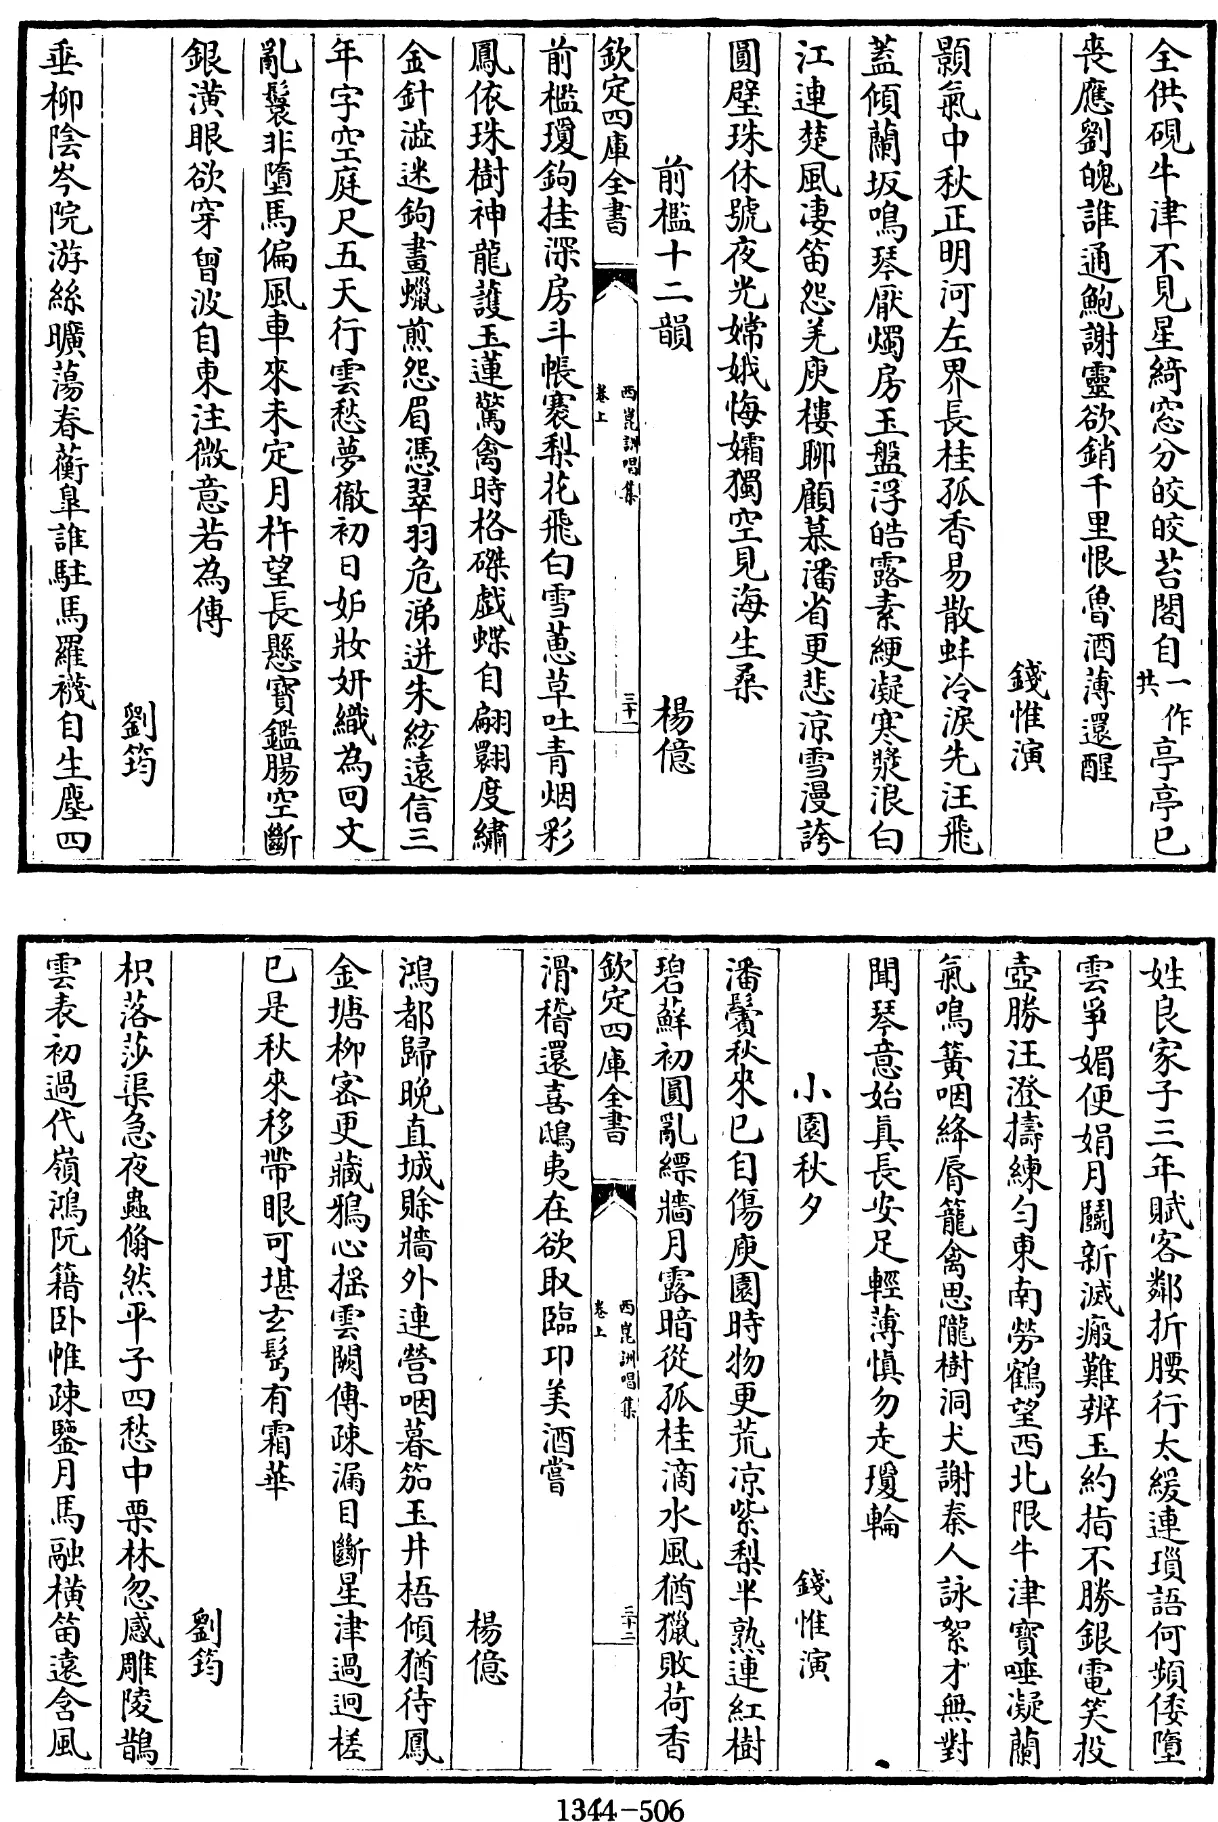 全供硯牛津不見星綺窓分皎皎苔閣自一作共亭亭已
喪應劉魄誰通鮑謝靈欲銷千里恨魯酒薄還醒
錢惟演
顥氣中秋正明河左界長桂孤香易散蚌冷淚先汪飛
蓋傾蘭坂鳴琴厭燭房玉盤浮皓露素綆凝寒漿浪白
江連楚風凄笛怨羌庾樓聊顧慕潘省更悲涼雪漫誇
圓璧珠休號夜光嫦娥悔孀獨空見海生桑
前檻十二韻
楊億
欽定四庫全書
西崑訓唱集
卷上
三十一
前檻瓊鉤挂深房斗帳褰梨花飛白雪蕙草吐青烟彩
鳳依珠樹神龍護玉蓮驚禽時格磔戲蝶自翩翾度繡
金針澁迷鉤畫蠟煎怨眉憑翠羽危涕迸朱絃遠信三
年字空庭尺五天行雲愁夢徹初日妒妝妍織為回文
亂鬟非墮馬偏風車來未定月杵望長懸寶鑑腸空斷
銀潢眼欲穿曾波自東注微意若為傳
劉筠
垂柳陰岑院游絲曠蕩春蘅臯誰駐馬羅襪自生塵四
姓良家子三年賦客鄰折腰行太緩連瑣語何頻倭墮
雲爭媚便娟月鬭新滅瘢難辨玉約指不勝銀電笑投
壺勝汪澄擣練勻東南勞鶴望西北限牛津寶唾凝蘭
氣鳴簧咽絳脣籠禽思隴樹洞犬謝秦人詠絮才無對
聞琴意始真長安足輕薄慎勿走瓊輪
小園秋夕
錢惟演
潘鬢秋來已自傷庾園時物更荒凉紫梨半熟連紅樹
碧蘚初圓亂縹牆月露暗從孤桂滴水風猶獵敗荷香
欽定四庫全書
西崑訓唱集
卷上
三十二
滑稽還喜鴟夷在欲取臨邛美酒嘗
楊億
鴻都歸晚直城賒牆外連營咽暮笳玉井梧傾猶待鳳
金塘柳密更藏鴉心搖雲闕傳疎漏目斷星津過迥槎
已是秋來移帶眼可堪玄髩有霜華
劉筠
枳落莎渠急夜蟲翛然平子四愁中栗林忽感雕陵鵲
雲表初過代嶺鴻阮籍卧帷疎鑒月馬融橫笛遠含風
1344-506